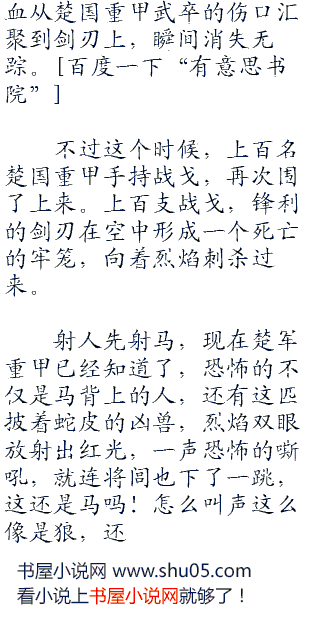 血从楚国重甲武卒的伤口汇
聚到剑刃上，瞬间消失无
踪。[百度一下“有意思书
院”]
不过这个时候，上百名
楚国重甲手持战戈，再次围
了上来。上百支战戈，锋利
的剑刃在空中形成一个死亡
的牢笼，向着烈焰刺杀过
来。
射人先射马，现在楚军
重甲已经知道了，恐怖的不
仅是马背上的人，还有这匹
披着蛇皮的凶兽，烈焰双眼
放射出红光，一声恐怖的嘶
吼，就连将闾也下了一跳，
这还是马吗！怎么叫声这么
像是狼，还
书屋小说网 www.shu05.com
看小说上书屋小说网就够了！